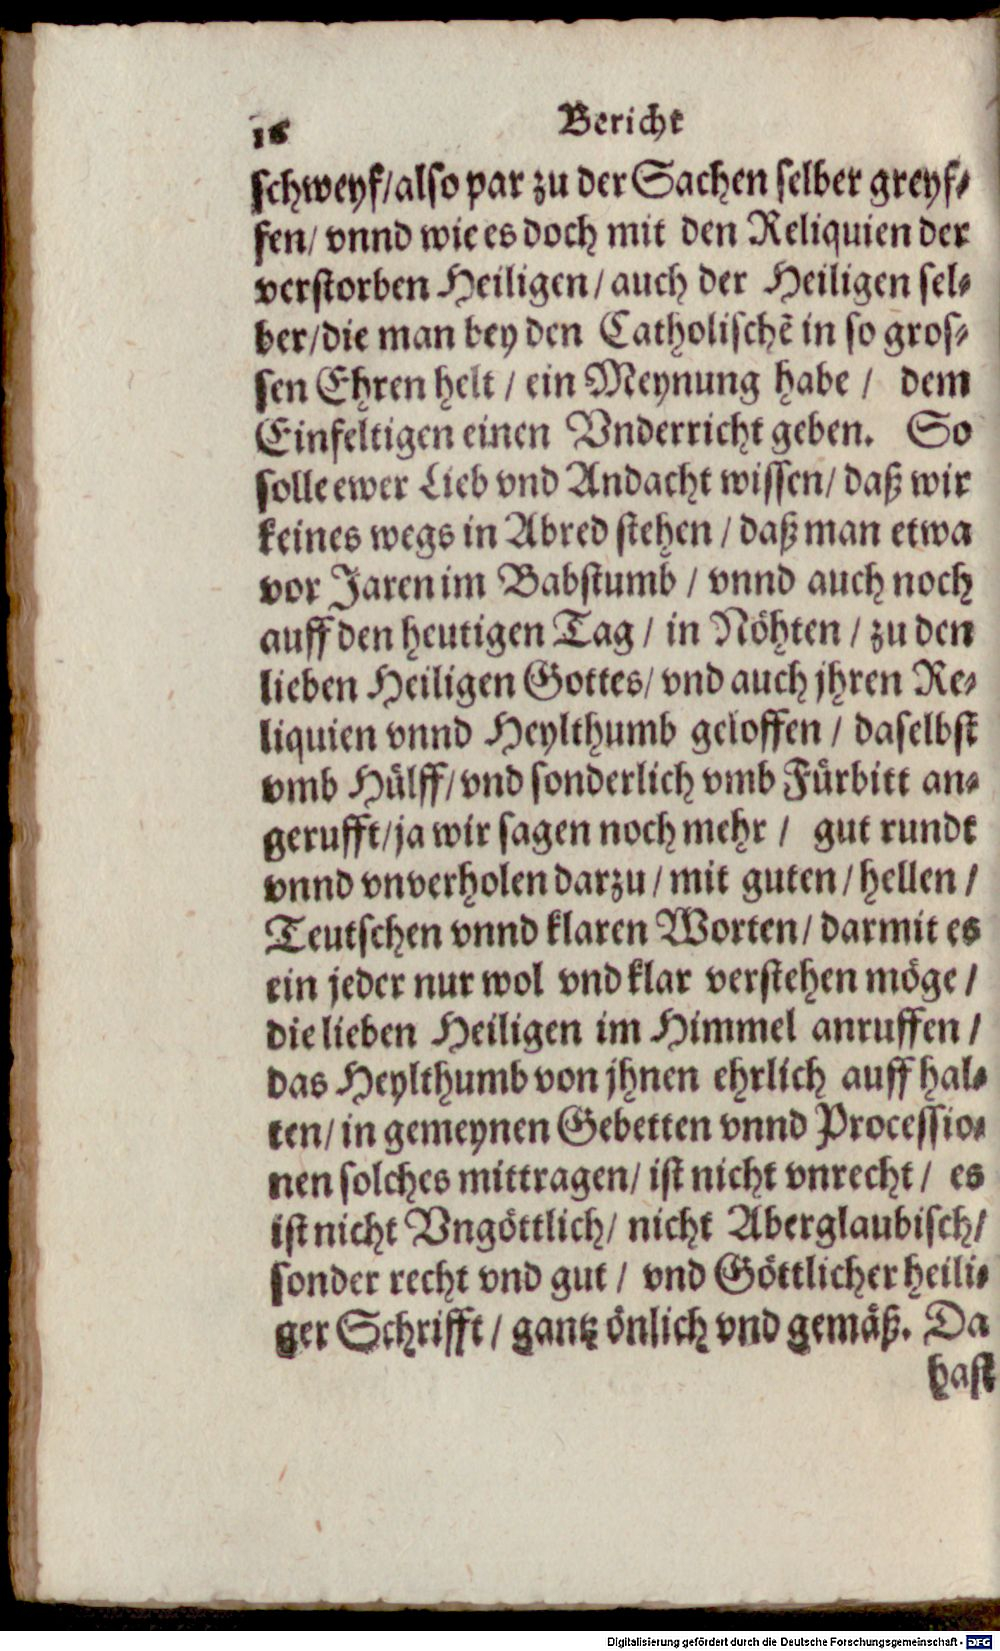 16 Bericht
schweyf/also par zu der Sachen selber greyf-
fen/ vnnd wie es doch mit den Reliquien der
verstorben Heiligen/ auch der Heiligen sel-
ber/die man bey den Catholischẽ in so gros-
sen Ehren helt / ein Meynung habe / dem
Einfeltigen einen Vnderricht geben. So
solle ewer Lieb vnd Andacht wissen/ daß wir
keines wegs in Abred stehen / daß man etwa
vor Jaren im Babstumb / vnnd auch noch
auff den heutigen Tag / in Nöhten / zu den
lieben Heiligen Gottes/ vnd auch jhren Re-
liquien vnnd Heylthumb geloffen / daselbst
vmb Hülff/ vnd sonderlich vmb Fürbitt an-
gerufft/ja wir sagen noch mehr / gut rundt
vnnd vnverholen darzu / mit guten / hellen /
Teutschen vnnd klaren Worten/ darmit es
ein jeder nur wol vnd klar verstehen möge /
die lieben Heiligen im Himmel anruffen /
das Heylthumb von jhnen ehrlich auff hal-
ten/ in gemeynen Gebetten vnnd Processio-
nen solches mittragen/ ist nicht vnrecht / es
ist nicht Vngöttlich/ nicht Aberglaubisch/
sonder recht vnd gut / vnd Göttlicher heili-
ger Schrifft / gantz önlich vnd gemäß. Da
hast
Digitalisierung gefördert durch die Deutsche Forschungsgemeinschaft - DFG